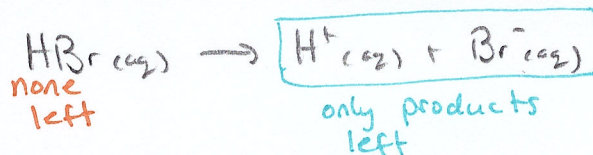 HBr(aq) → H⁺(aq) + Br⁻(aq)
none
left
only products
left